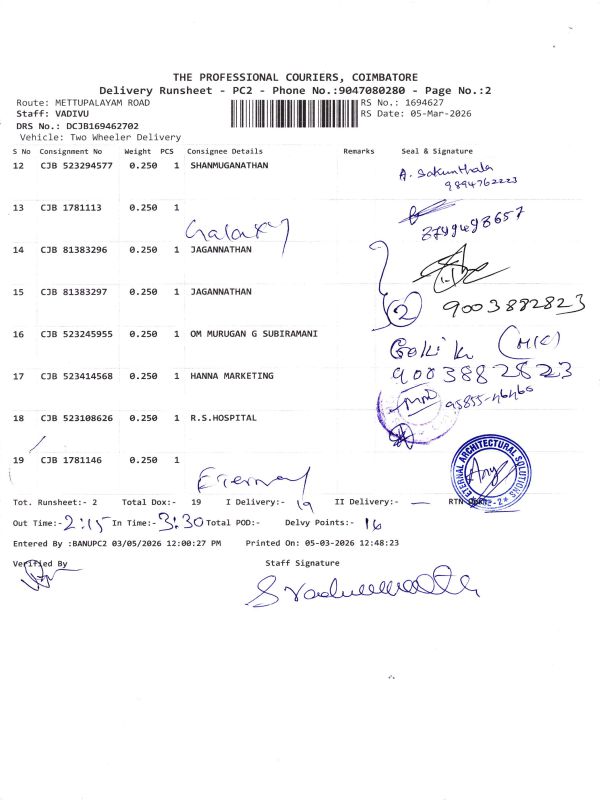 THE PROFESSIONAL COURIERS, COIMBATORE
Delivery Runsheet - PC2 - Phone No.:9047080280 - Page No.:2
Route: METTUPALAYAM ROAD RS No.: 1694627
Staff: VADIVU RS Date: 05-Mar-2026
DRS No.: DCJB169462702
Vehicle: Two Wheeler Delivery
S No Consignment No Weight PCS Consignee Details Remarks Seal & Signature
12 CJB 523294577 0.250 1 SHANMUGANATHAN A. Sakunthala
9894762223
13 CJB 1781113 0.250 1
Galaxy 8799498657
14 CJB 81383296 0.250 1 JAGANNATHAN
15 CJB 81383297 0.250 1 JAGANNATHAN 2 9003882823
16 CJB 523245955 0.250 1 OM MURUGAN G SUBIRAMANI
17 CJB 523414568 0.250 1 HANNA MARKETING 9003882823
95855-46466
18 CJB 523108626 0.250 1 R.S.HOSPITAL
19 CJB 1781146 0.250 1
Eternal ETERNAL ARCHITECTURAL SOLUTIONS
Tot. Runsheet:- 2 Total Dox:- 19 I Delivery:- 19 II Delivery:- —
Out Time:- 2:15 In Time:- 3:30 Total POD:- Delvy Points:- 16
Entered By :BANUPC2 03/05/2026 12:00:27 PM Printed On: 05-03-2026 12:48:23
Verified By Staff Signature